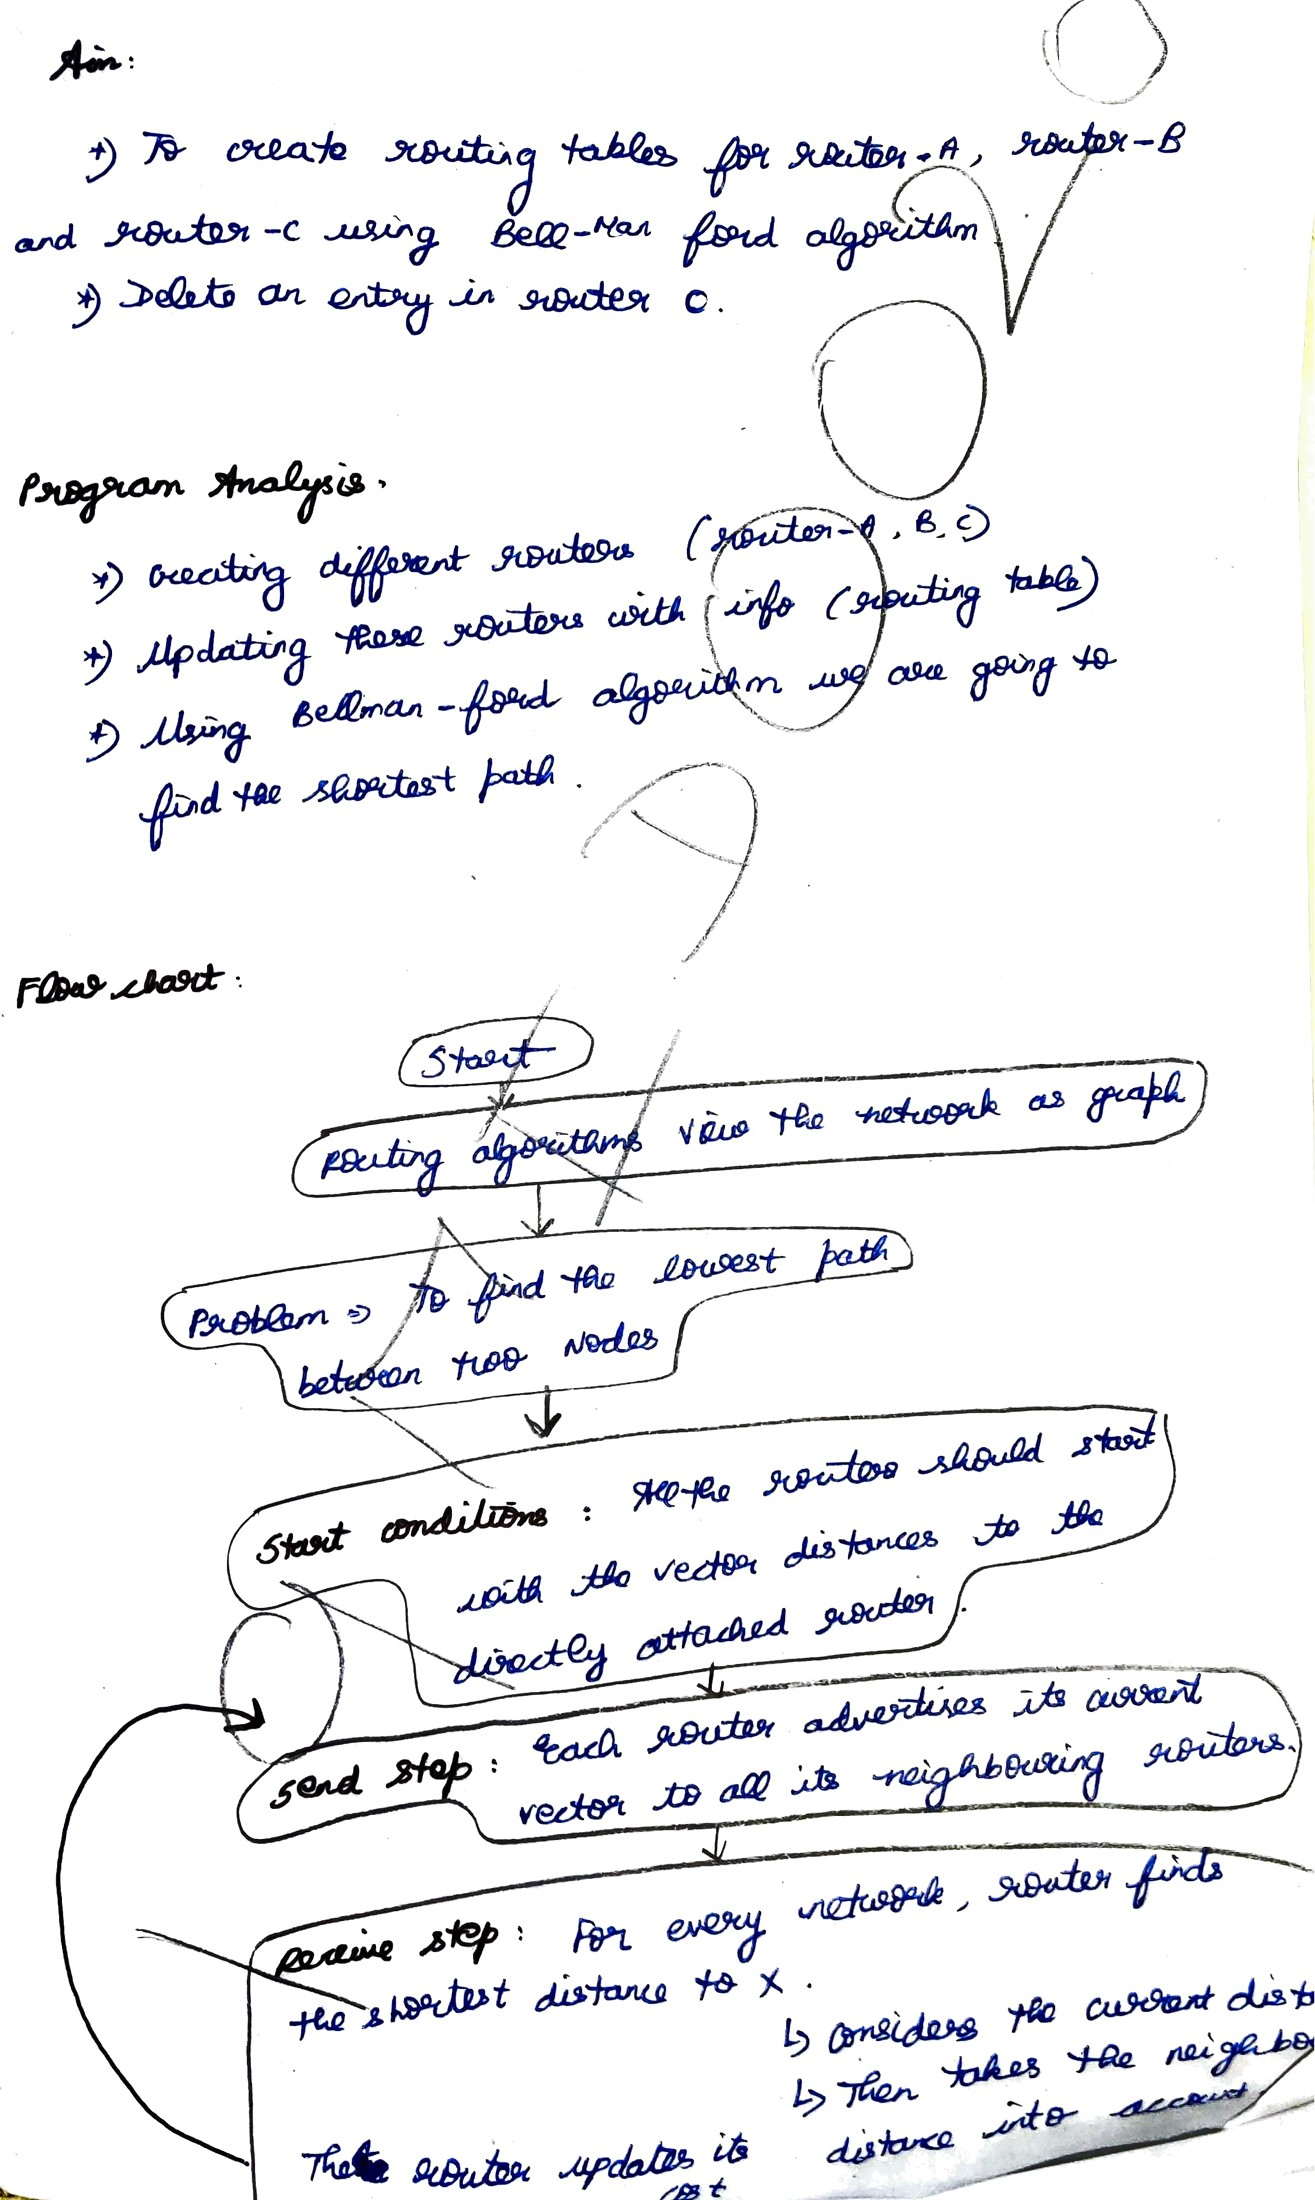 Aim:
*) To create routing tables for router-A, router-B
and router-C using Bell-Man ford algorithm
*) Delete an entry in router C.
Program Analysis.
*) creating different routers (router-A, B, C)
*) Updating these routers with info (routing table)
*) Using Bellman-ford algorithm we are going to
find the shortest path.
Flow chart:
Start
Routing algorithms view the network as graph
Problem ⇒ To find the lowest path
between two Nodes
Start conditions: All the routers should start
with the vector distances to the
directly attached router.
Send step: Each router advertises its current
vector to all its neighbouring routers.
Receive step: For every network, router finds
the shortest distance to X.
↳ considers the current dist
↳ Then takes the neighbo
distance into account
The router updates its